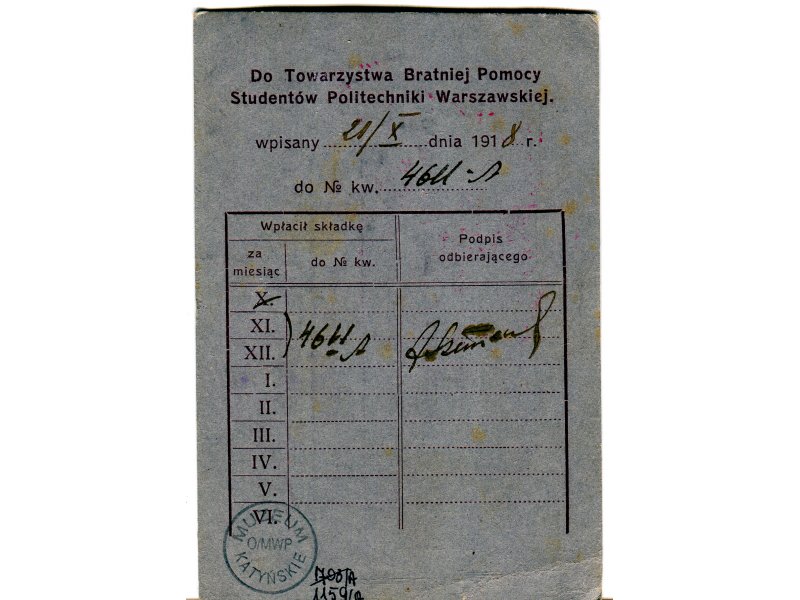 Do Towarzystwa Bratniej Pomocy
Studentów Politechniki Warszawskiej.
wpisany 21/X dnia 1918 r.
do № kw. 4611-A
Wpłacił składkę
Podpis
odbierającego
za
miesiąc
do № kw.
X.
XI.
XII.
I.
II.
III.
IV.
V.
VI.
MUZEUM
O/MWP
KATYŃSKIE